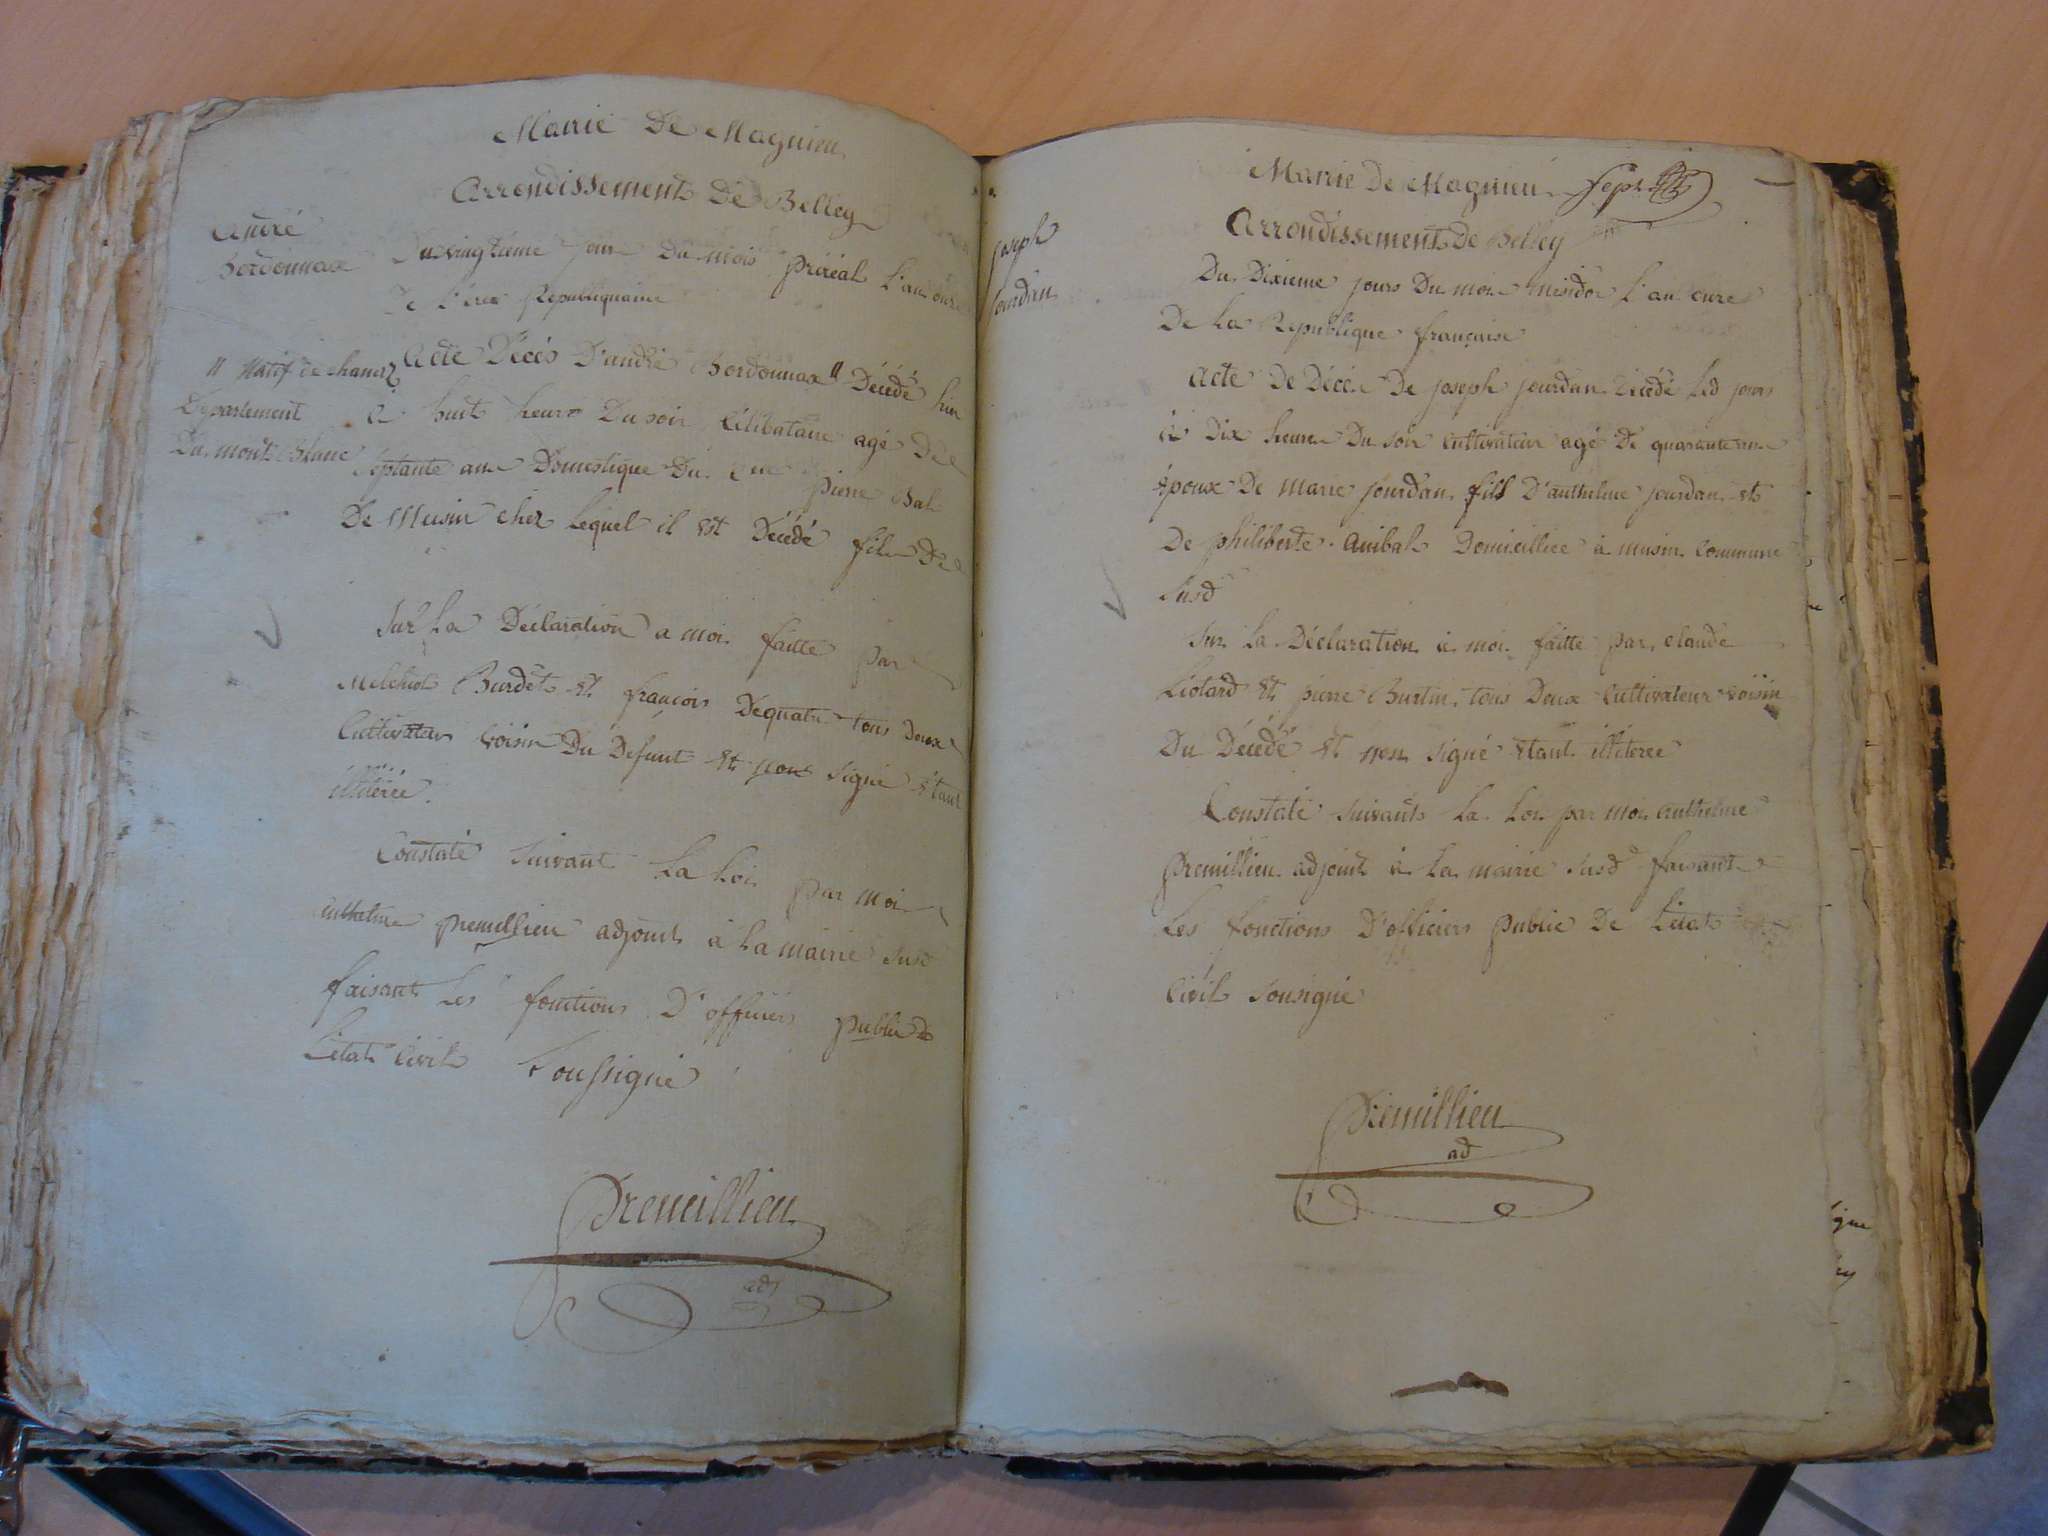 Mairie De Magnieu
Arrondissement De Belley
André
Bordonnax
Du vingtieme jour Du mois prréal L'an onze
De L'érex Republiquaine
Acte Décés D'andré Bordonnax " Décédé hier
" Natif de chanaz
Département
Du mont Blanc
à huit heures Du soir Célibataire agé De
Septante ans Domestique Du Pierre Bal
De Musin chez Lequel il Est Décédé fils De
Sur La Déclaration a moi faitte par
Melchiot Burdet Et françois Dequatre tous Deux
Cultivateur voisin Du Defunt Et non Signé Etant
illiterée.
Constaté suivant La Loi par moi
anthelme premillieu adjoint à La mairie susd
faisant Les fonctions D'officiers public De
L'etat Civil Soussigné
Premillieu
adj
Mairie De Magnieu Sept
Arrondissement De Belley
joseph
jourdan
Du Dixieme jours Du mois mesidor L'an onze
De La Republique française
Acte De Décés De joseph jourdan Décédé Led jours
à Dix heures Du soir Cultivateur agé De quarante ans
Epoux De marie jourdan fils D'anthelme jourdan Et
De philiberte Anibal Domicilliée à musin Commune
susd
Sur La Déclaration à moi faitte par Claude
Liotard Et pierre Burtin tous Deux Cultivateur voisin
Du Décédé Et non signé Etant illiterée
Constaté suivant La Loi par moi anthelme
premillieu adjoint à La mairie susd faisant
Les fonctions D'officiers public De L'etat
Civil Sousigné
Premillieu
ad